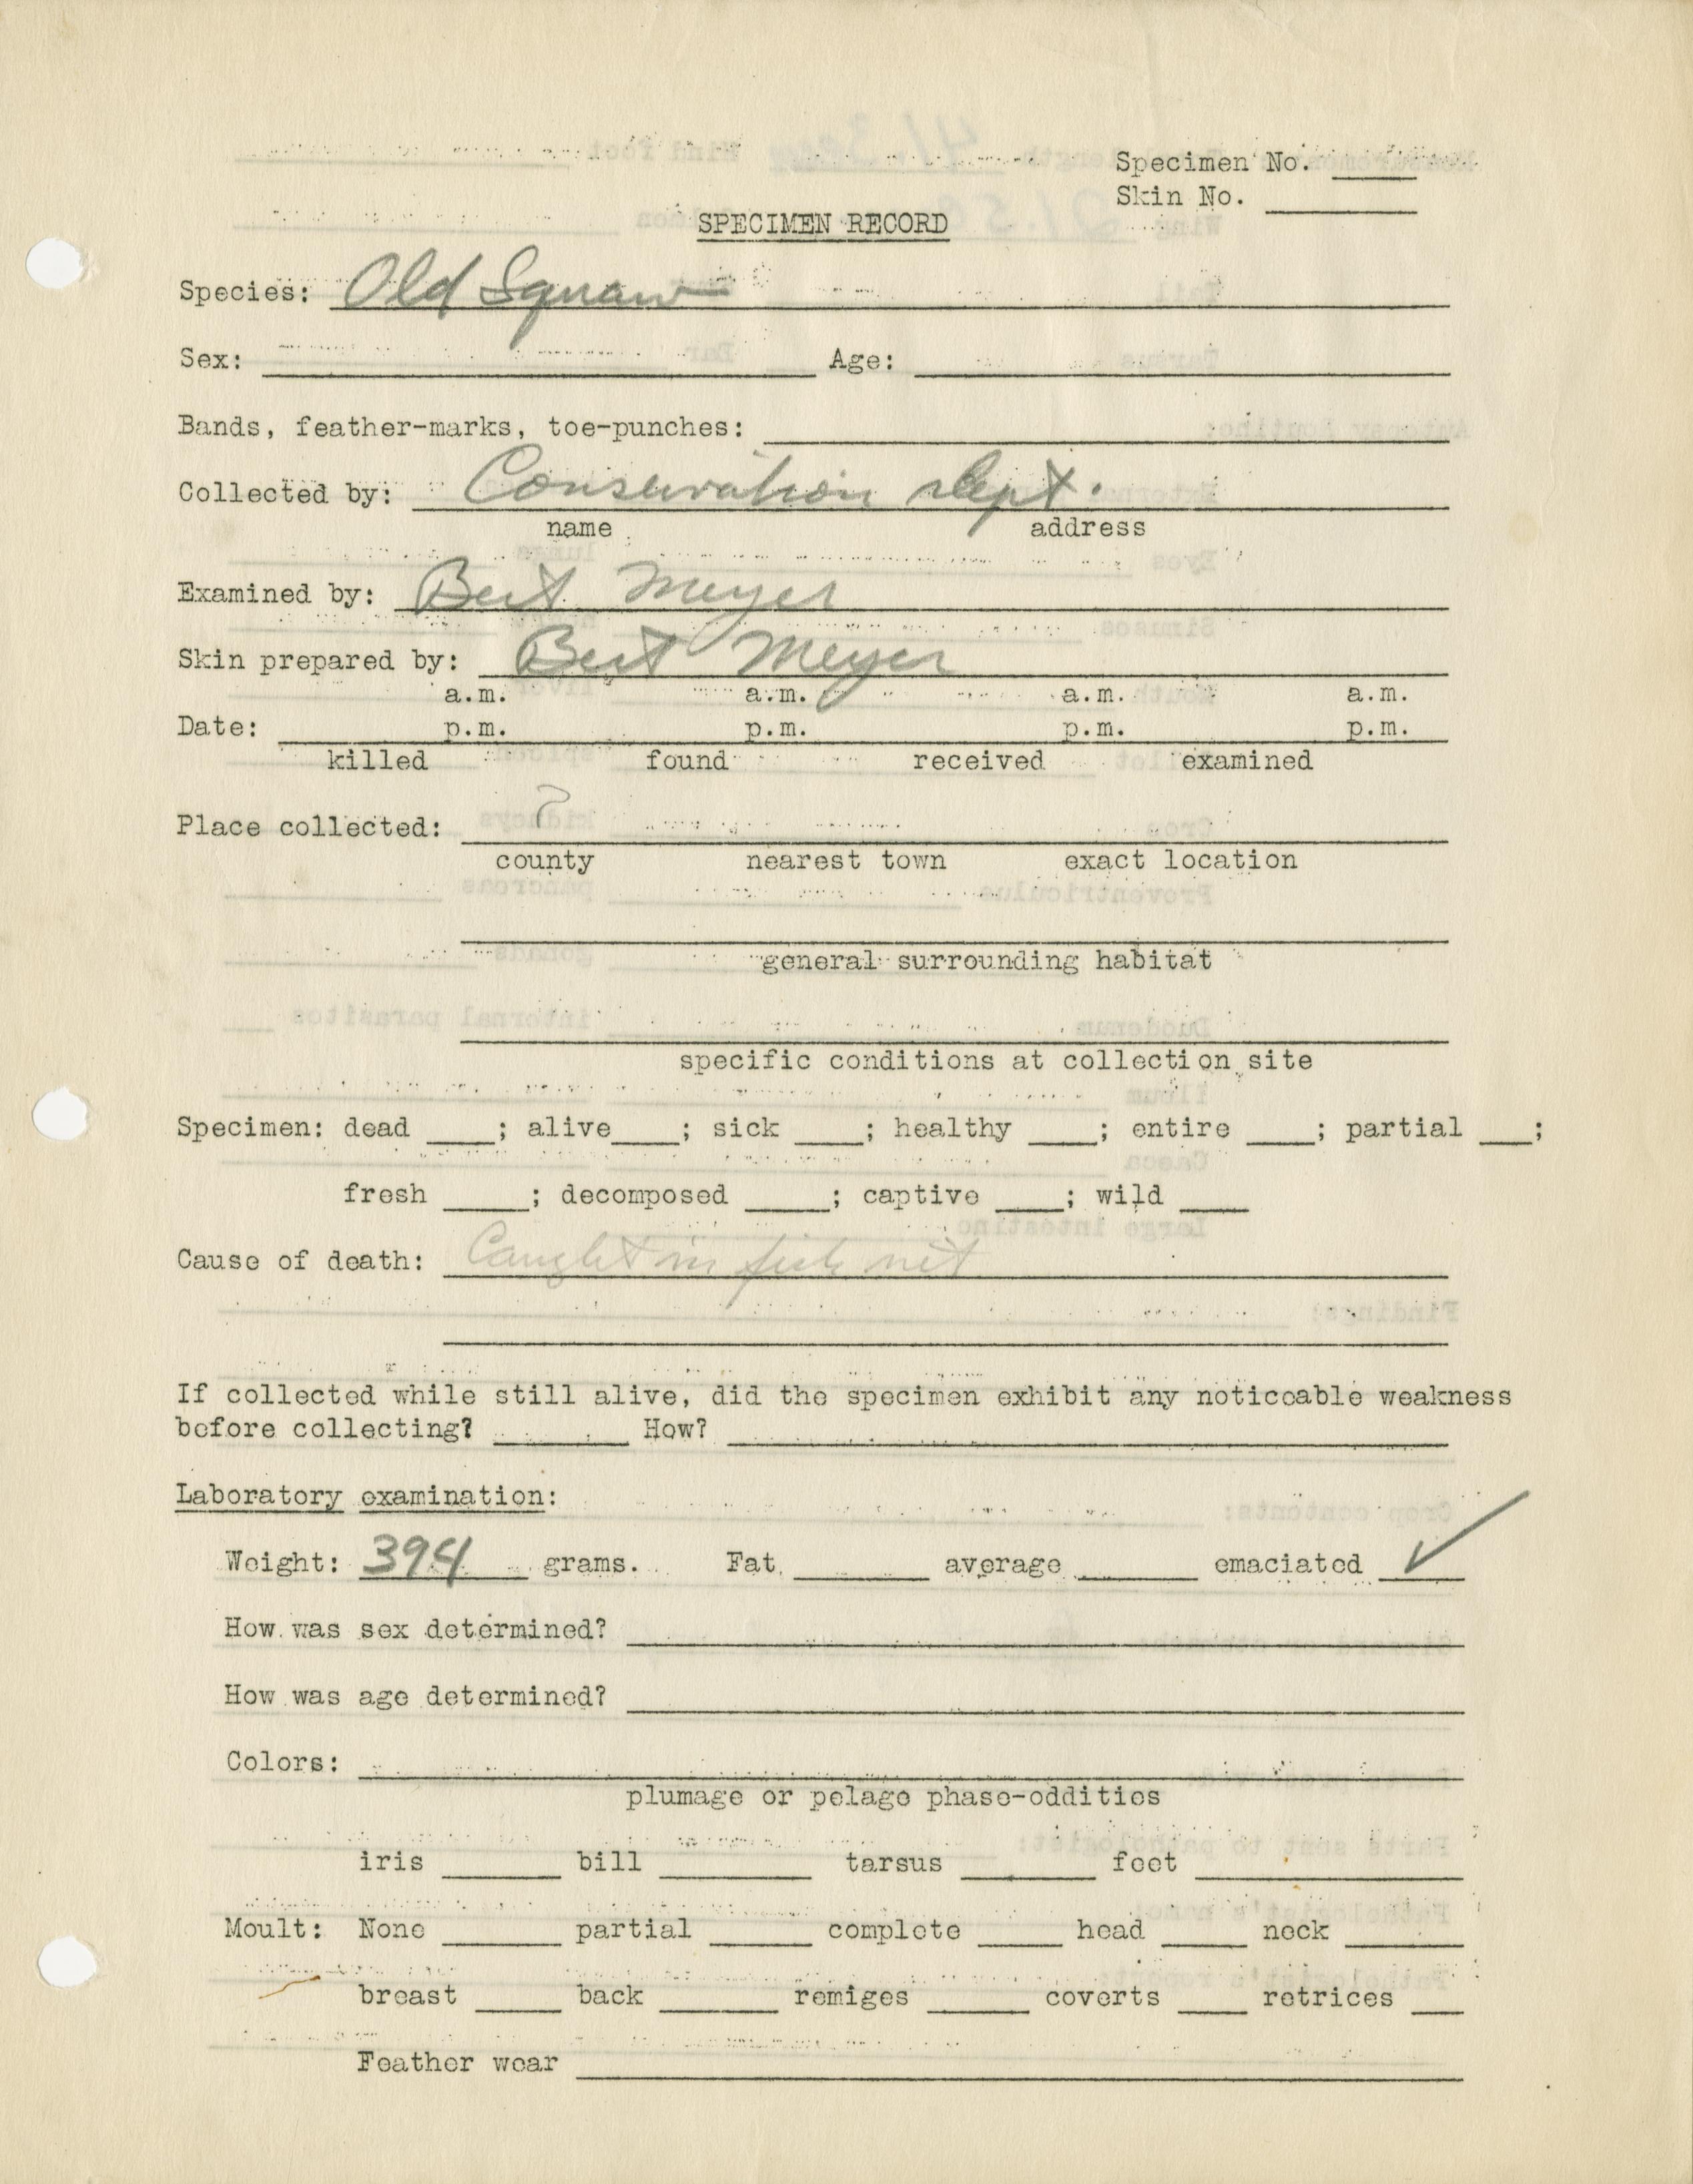 Specimen No. ____
Skin No. ____
SPECIMEN RECORD
Species: Old Squaw
Sex: ____ Age: ____
Bands, feather-marks, toe-punches: ____
Collected by: Conservation Dept.
name address
Examined by: Bert Meyer
Skin prepared by: Bert Meyer
a.m. a.m. a.m. a.m.
Date: p.m. p.m. p.m. p.m.
killed found received examined
Place collected: ?
county nearest town exact location
general surrounding habitat
specific conditions at collection site
Specimen: dead ____; alive____; sick ____; healthy ____; entire ____; partial ___;
fresh ____; decomposed ____; captive ____; wild ____
Cause of death: Caught in fish net
If collected while still alive, did the specimen exhibit any noticeable weakness
before collecting? ____ How? ____
Laboratory examination:
Weight: 394 grams. Fat ____ average ____ emaciated ✓
How was sex determined? ____
How was age determined? ____
Colors: ____
plumage or pelage phase-oddities
iris ____ bill ____ tarsus ____ foot ____
Moult: None ____ partial ____ complete ____ head ____ neck ____
breast ____ back ____ remiges ____ coverts ____ retrices ____
Feather wear ____